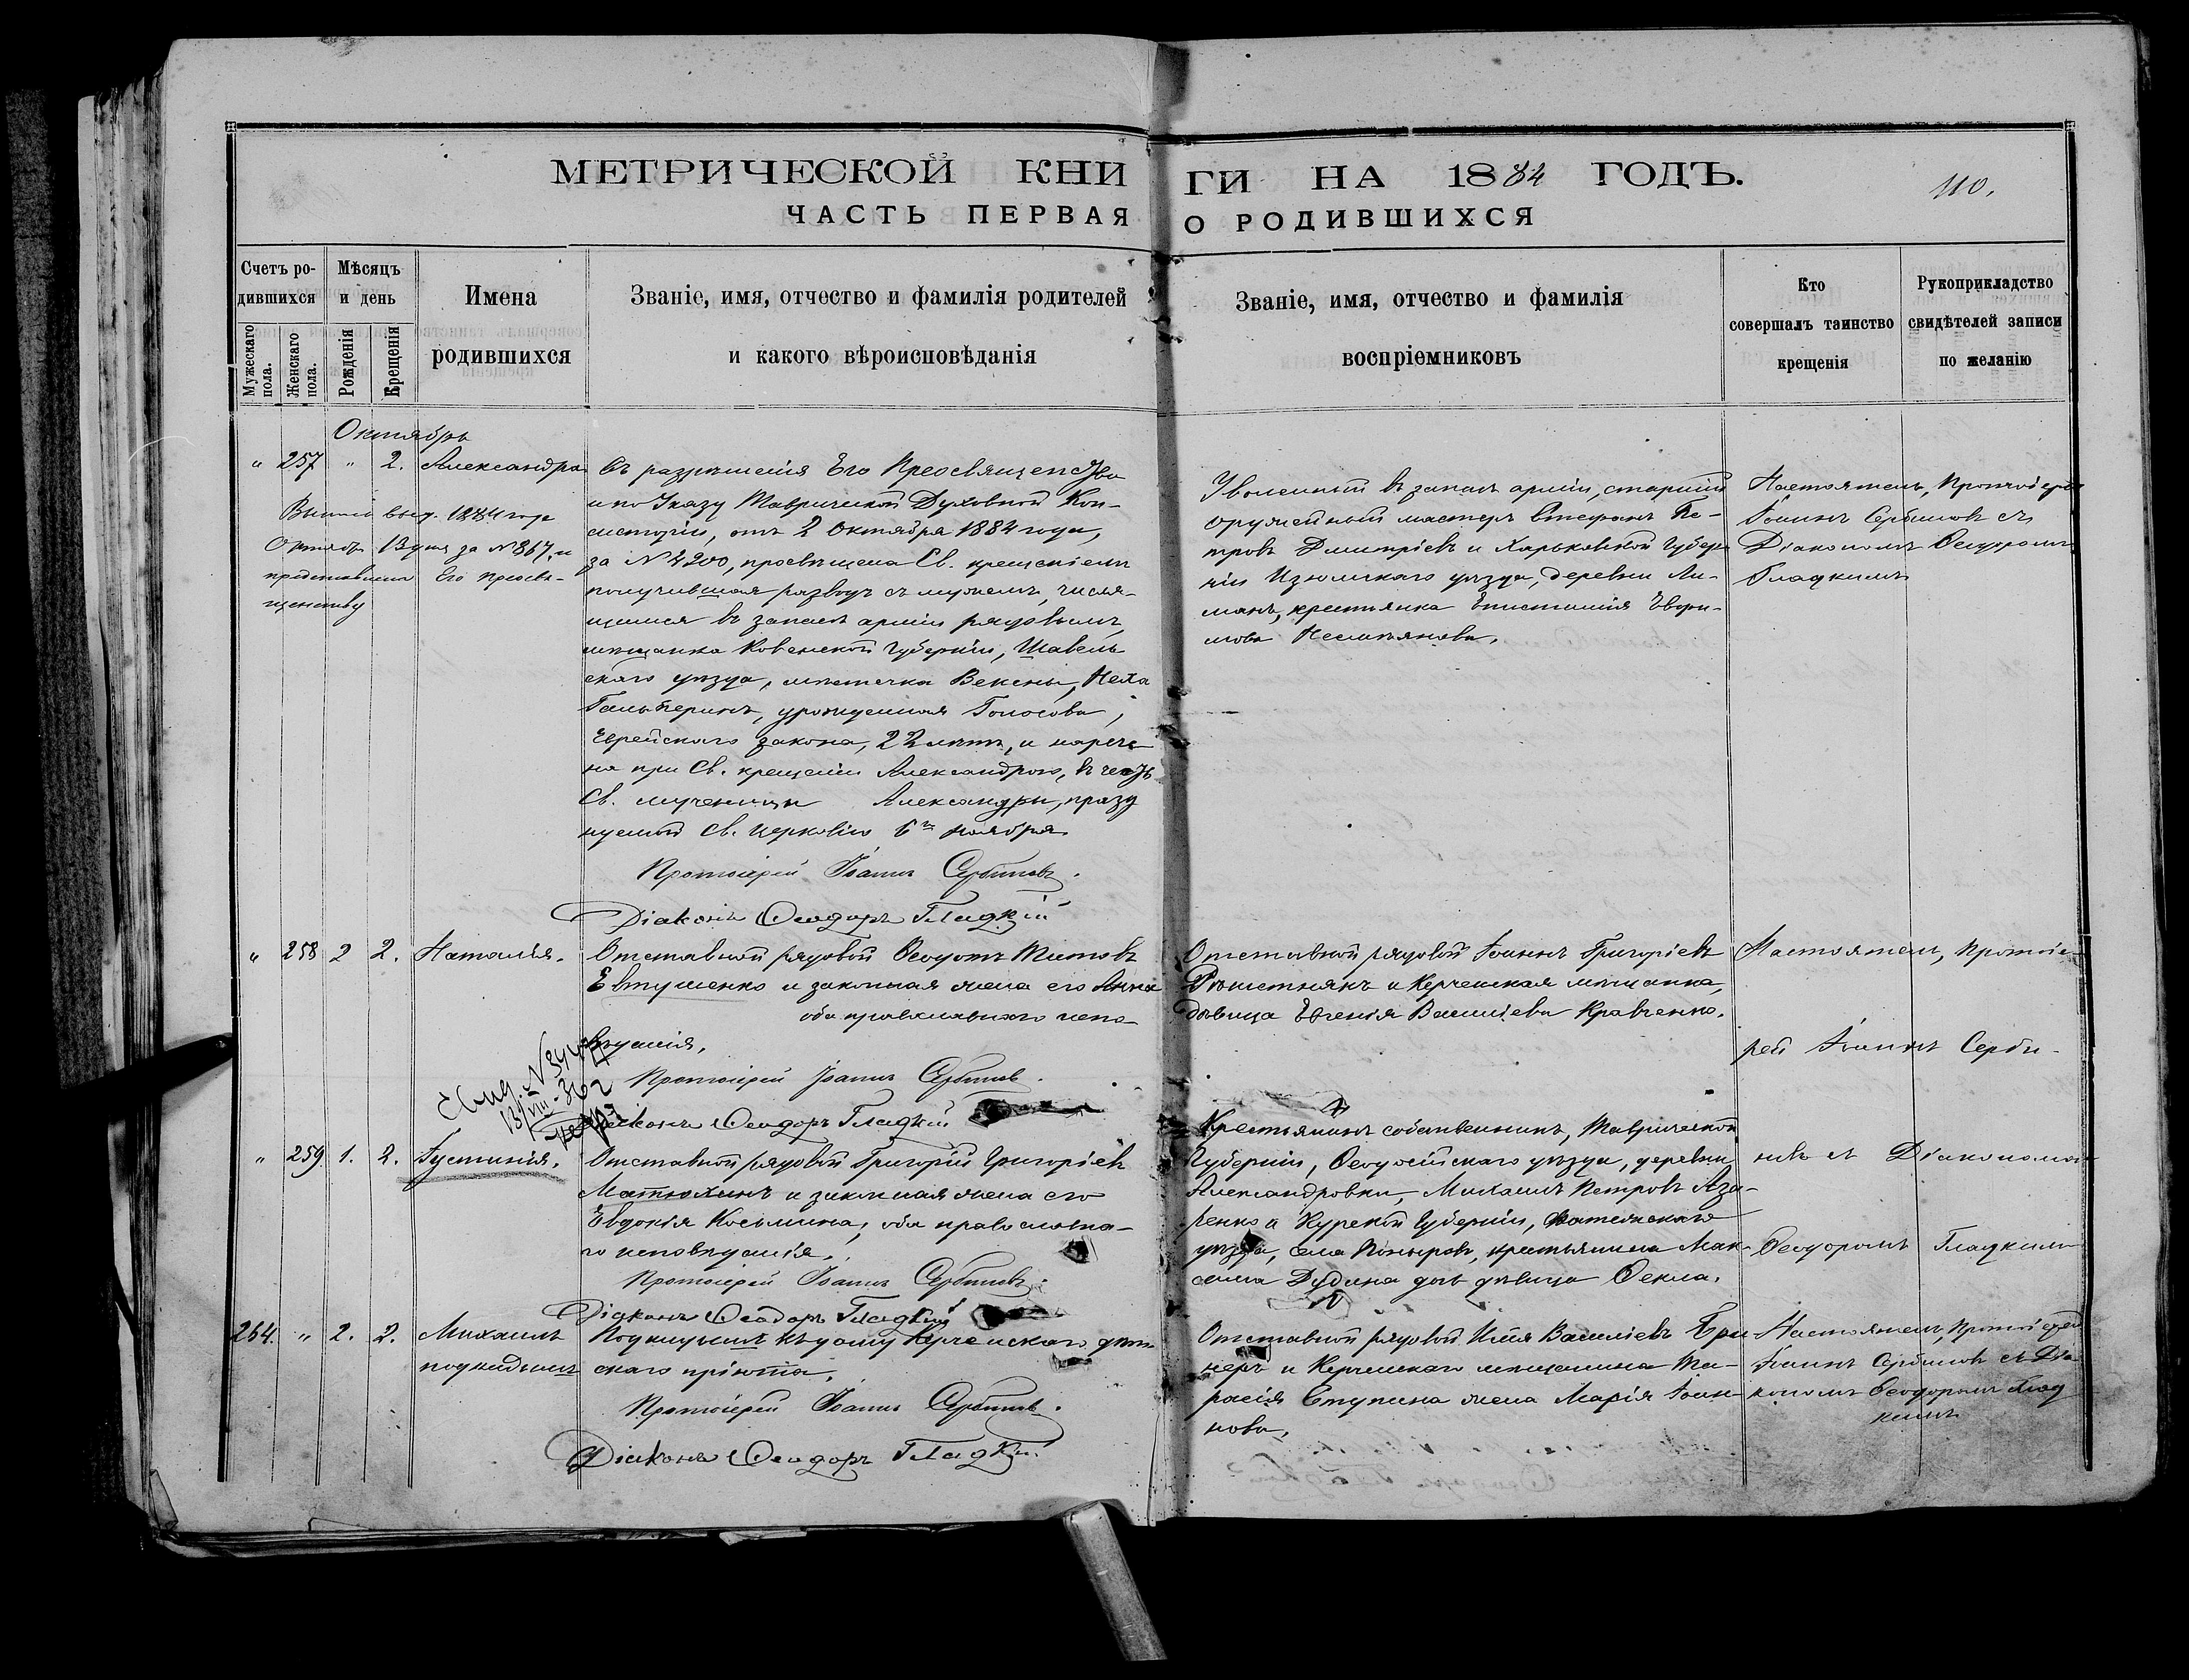 МЕТРИЧЕСКОЙ КНИГИ НА 1884 ГОДЪ.
110.
ЧАСТЬ ПЕРВАЯ О РОДИВШИХСЯ
Счетъ родившихся
Мужескаго пола.
Женскаго пола.
Мѣсяцъ и день
Рожденія
Крещенія
Имена
родившихся
Званіе, имя, отчество и фамилія родителей
и какого вѣроисповѣданія
Званіе, имя, отчество и фамилія
воспріемниковъ
Кто
совершалъ таинство
крещенія
Рукоприкладство
свидѣтелей записи
по желанію
Октябрь
" 257 " 2. Александра
Съ разрѣшенія Его Преосвященства
и по Указу Таврической Духовной Кон-
систоріи, отъ 2 Октября 1884 года,
за № 4200, просвѣщена Св. крещеніемъ
получившая разводъ съ мужемъ, числя-
щимся въ запасѣ арміи рядовымъ,
мѣщанка Ковенской Губерніи, Шавель
скаго уѣзда, мѣстечка Векены, Неха
Гальперинъ, урожденная Голосова,
Еврейскаго закона, 22 лѣтъ, и нарече-
на при Св. крещеніи Александрою, въ честь
Св. мученицы Александры, празд
нуемой Св. церковію 6го Ноября
Протоіерей Іоаннъ Сербиновъ.
Діаконъ Ѳеодоръ Гладкій
года
Октября 13 дня за № 867, и
представлена Его Преосвя-
щенству
Уволенный въ запасъ арміи, старшій
оружейный мастеръ Стефанъ Пе-
тровъ Дмитріевъ и Харьковской Губер
ніи Изюмскаго уѣзда, деревни Ли-
манъ, крестьянка Епистимія Ефи-
мова Несмѣянова.
Настоятель, Протоіерей
Іоаннъ Сербиновъ съ
Діакономъ Ѳеодоромъ
Гладкимъ
" 258 2 2. Наталія.
Отставной рядовой Ѳеодотъ Титовъ
Евтушенко и законная жена его Анна
оба православнаго испо-
вѣданія.
Протоіерей Іоаннъ Сербиновъ.
Діаконъ Ѳеодоръ Гладкій
Отставной рядовой Іоаннъ Григоріевъ
и Керченская мѣщанка,
дѣвица Евгенія Василіева Кравченко.
Настоятель, Протоіе-
рей Іоаннъ Серби-
новъ съ Діакономъ
Ѳеодоромъ Гладкимъ
" 259 1. 2. Іустинія.
Отставной рядовой Григорій Григоріевъ
Матюхинъ и законная жена его
Евдокія Косьмина, оба православна-
го исповѣданія.
Протоіерей Іоаннъ Сербиновъ.
Діаконъ Ѳеодоръ Гладкій
Крестьянинъ собственникъ, Таврической
Губерніи, Ѳеодосійскаго уѣзда, деревни
Александровки, Михаилъ Петровъ Аза-
ренко и Курской Губерніи, Фатежскаго
уѣзда, села Поныровъ, крестьянина Мак-
сима Дудина дочь дѣвица Ѳекла.
264. " 2. 2. Михаилъ
подкидышъ
Подкидышъ къ дому Керченскаго дѣт-
скаго пріюта.
Протоіерей Іоаннъ Сербиновъ.
Діаконъ Ѳеодоръ Гладкій
Отставной рядовой Илія Василіевъ
и Керченскаго мѣщанина Та-
расія Ступина жена Марія Іоан-
нова.
Настоятель, Протоіерей
Іоаннъ Сербиновъ съ Діа-
кономъ Ѳеодоромъ Глад
кимъ